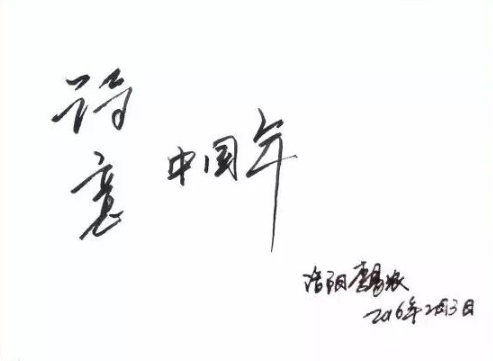 诗意
中国年
洛阳李易农
2016年2月3日